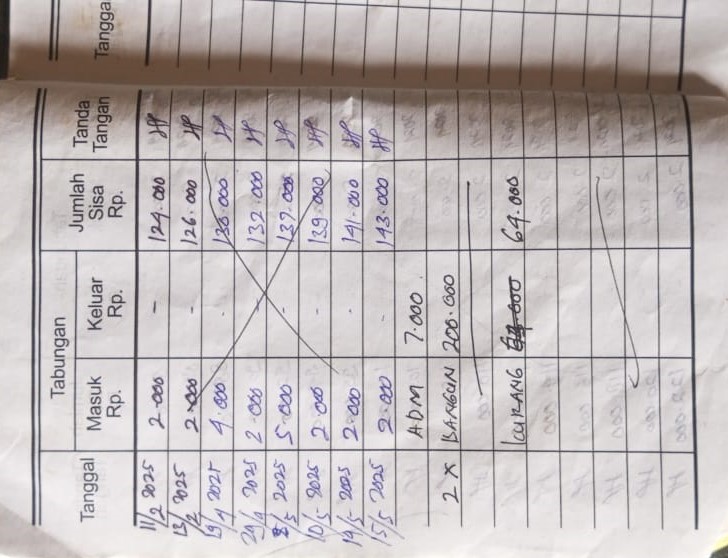 Tangga
Tabungan
Tanggal Masuk Rp. Keluar Rp. Jumlah Sisa Rp. Tanda Tangan
11/2 2025 2.000 - 124.000
13/2 2025 2.000 - 126.000
19/4 2025 4.000 - 130.000
29/4 2025 2.000 - 132.000
8/5 2025 5.000 - 137.000
10/5 2025 2.000 - 139.000
14/5 2025 2.000 - 141.000
15/5 2025 2.000 - 143.000
ADM 7.000
2 X BANGUN 200.000
KURANG 64.000